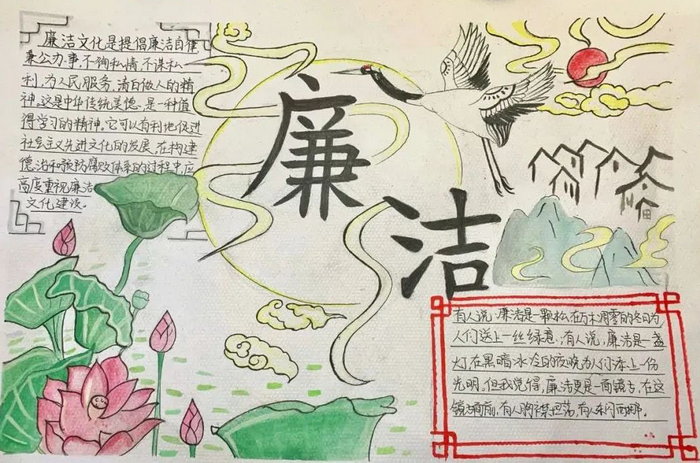 廉洁文化是提倡廉洁自律
秉公办事,不徇私情,不谋私
利,为人民服务,清白做人的精
神。这是中华传统美德,是一种值
得学习的精神。它可以有利地促进
社会主义先进文化的发展,在构建
惩治和预防腐败体系的过程中应
高度重视廉洁
文化建设。
廉
洁
有人说,廉洁是一颗松,在万木凋零的冬日为
人们送上一丝绿意,有人说,廉洁是一盏
灯,在黑暗冰冷的夜晚为人们添上一份
光明。但我觉得,廉洁更是一面镜子,在这
镜子面前,有人胸襟坦荡,有人